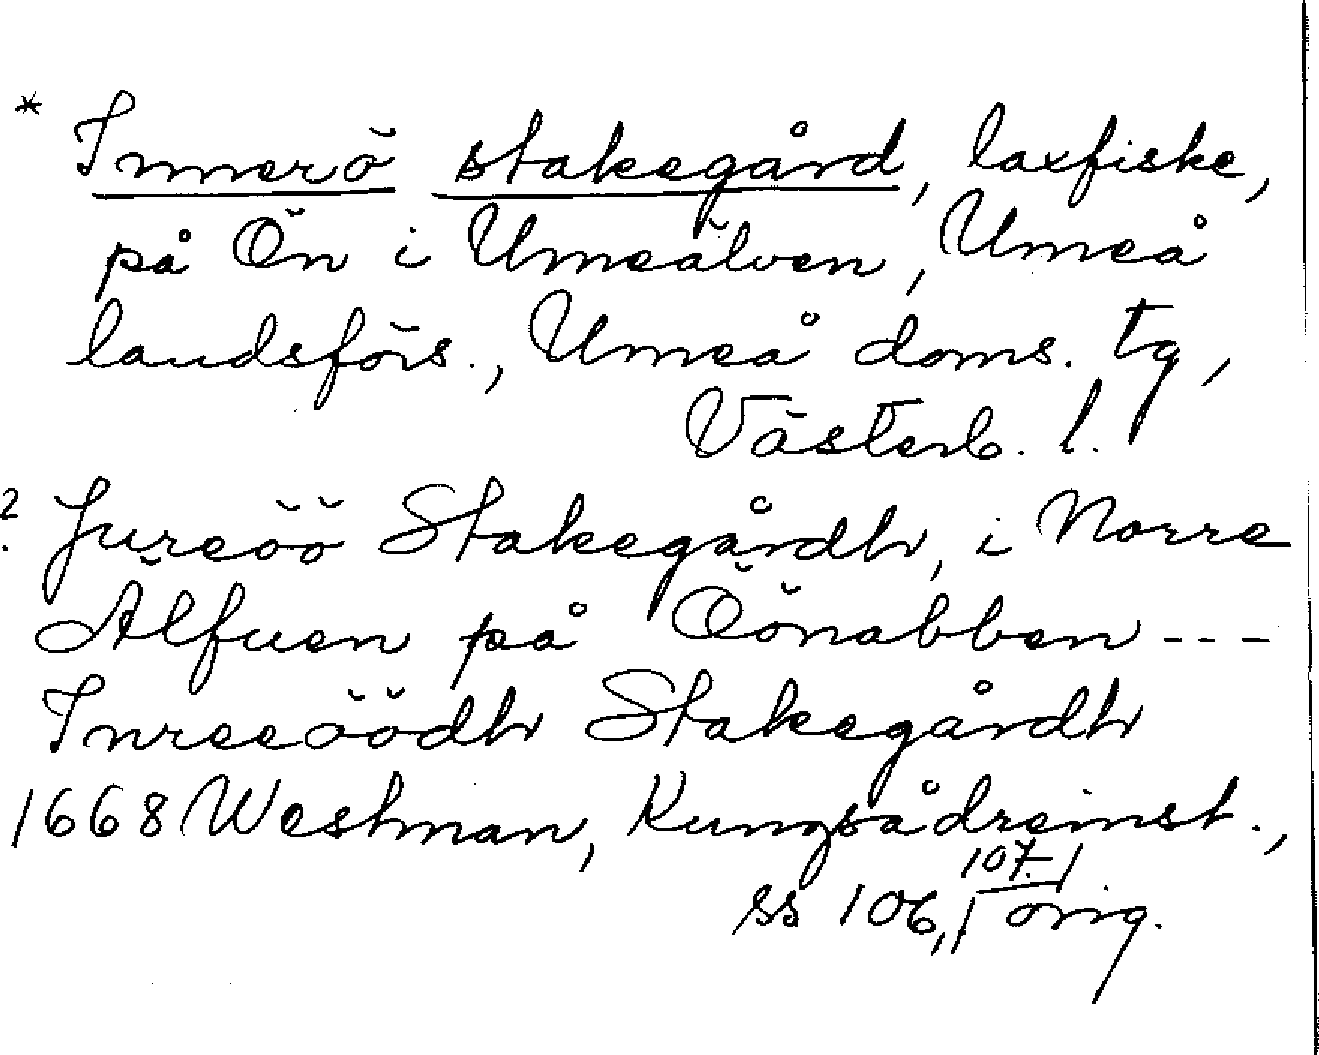 * Innerö stakegård, laxfiske,
på Ön i Umeälven, Umeå
landsförs., Umeå doms. tg,
Västerb. l.
? Jureöö Stakegårdh, i Norre
Älfuen på Öönabben ---
Inreeöödh Stakegårdh
1668 Westman, Kungsådreinst.,
ss 106, 107. orig.